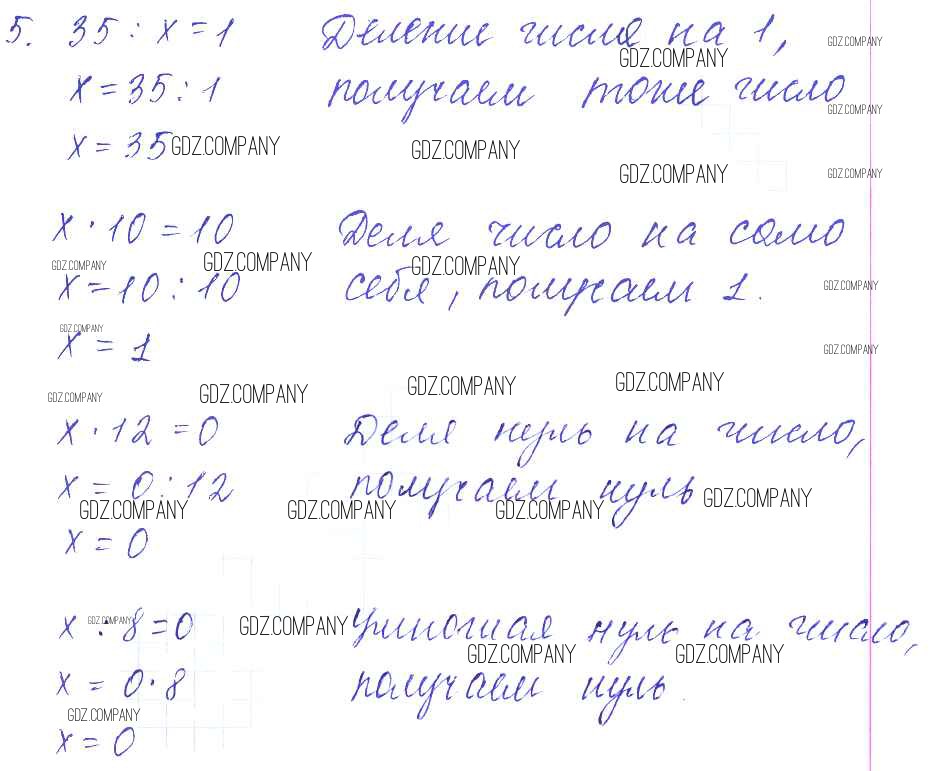 5. 35 : x = 1 Деление числа на 1,
GDZ.COMPANY
GDZ.COMPANY
x = 35 : 1 получаем тоже число
GDZ.COMPANY
x = 35
GDZ.COMPANY GDZ.COMPANY
GDZ.COMPANY GDZ.COMPANY
x · 10 = 10 Деля число на само
GDZ.COMPANY GDZ.COMPANY GDZ.COMPANY
x = 10 : 10 себя, получаем 1.
GDZ.COMPANY
GDZ.COMPANY
x = 1
GDZ.COMPANY
GDZ.COMPANY GDZ.COMPANY GDZ.COMPANY GDZ.COMPANY
x · 12 = 0 Деля нуль на число,
x = 0 : 12 получаем нуль
GDZ.COMPANY GDZ.COMPANY GDZ.COMPANY GDZ.COMPANY
x = 0
x : 8 = 0 Умножая нуль на число,
GDZ.COMPANY GDZ.COMPANY
GDZ.COMPANY GDZ.COMPANY
x = 0 · 8 получаем нуль.
GDZ.COMPANY
x = 0